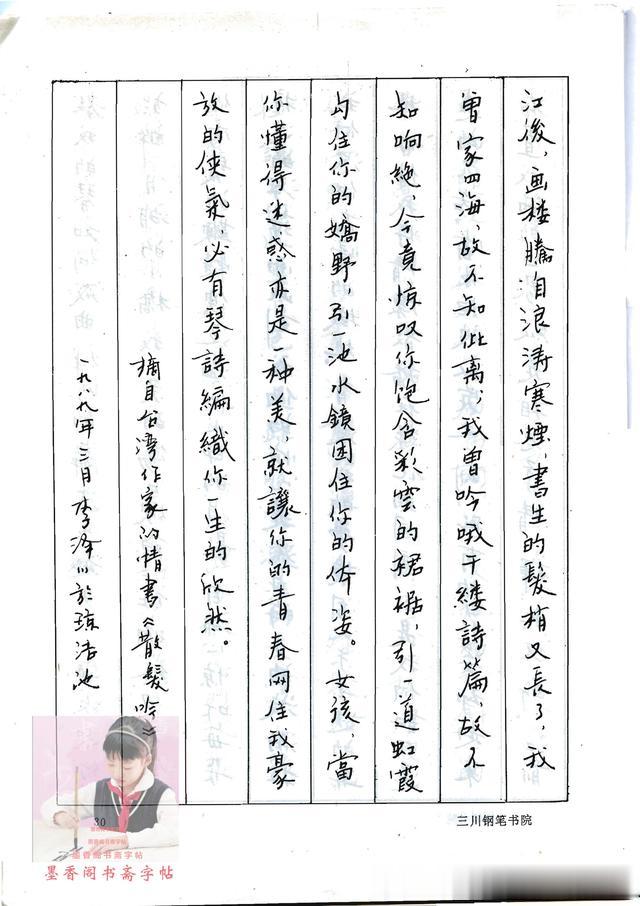 江後，画楼騰泊浪涛寒煙，書生的髮梢又長了，我
曾家四海，故不知仳离；我曾吟哦千縷詩篇，故不
知响絶，今竟惊叹你饱含彩雲的裙裾，引一道虹霞
勾住你的嬌野，引一池水鏡困住你的体姿。女孩，當
你懂得迷惑亦是一种美，就讓你的青春网住我豪
放的侠氣，必有琴詩編織你一生的欣然。
摘自台湾作家的情書《散髮吟》
一九八九年三月李泽川於琼池
30
三川钢笔书院
墨香阁书斋字帖
墨香阁书斋字帖